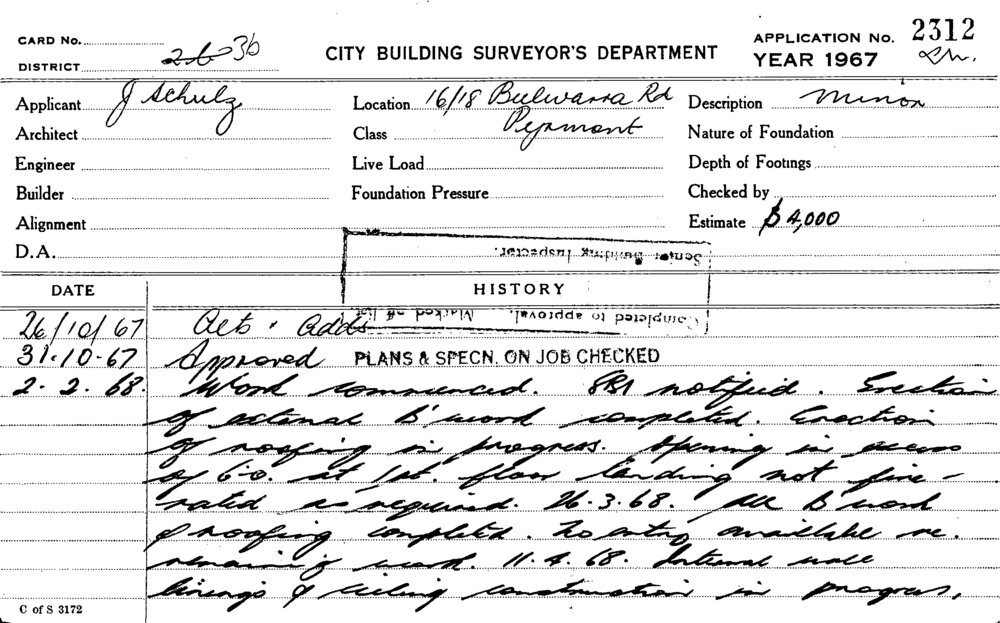 CARD No. 
DISTRICT 26 36
CITY BUILDING SURVEYOR'S DEPARTMENT
APPLICATION No. 2312
YEAR 1967
Applicant J Schulz
Location 16/18 Bulwarra Rd
Description Minor
Architect
Class Pyrmont
Nature of Foundation
Engineer
Live Load
Depth of Footings
Builder
Foundation Pressure
Checked by
Alignment
Estimate $4,000
D.A.
Senior Building Inspector.
DATE HISTORY
Completed to approval. Marked off list
26/10/67 Alts. Adds
31-10-67 Approved PLANS & SPECN. ON JOB CHECKED
2. 2. 68. Work commenced. notified. Erection
of external B'work completed. Erection
of roofing in progress. Opening in excess
of 6-0. at 1st. floor landing not fire-
rated as required. 26.3.68. All B'work
& roofing completed. No entry available re.
remaining work. 11.4.68. Internal wall
linings & ceiling construction in progress.
C of S 3172